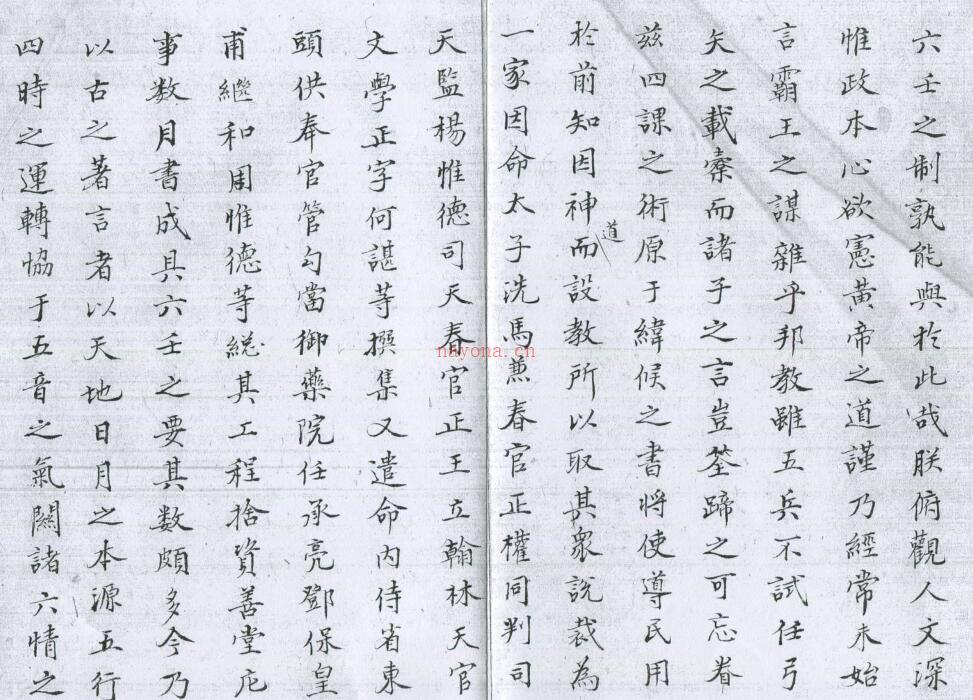 六壬之制孰能與扵此哉朕俯觀人文深
惟政本心欲憲黄帝之道謹乃經常未始
言霸王之謀雜乎邦教雖五兵不試任弓
矢之載櫜而諸子之言豈筌蹄之可忘眷
兹四課之術原于緯候之書將使導民用
扵前知因神道而設教所以取其衆説裁為
一家因命太子洗馬兼春官正權同判司
天監楊惟德司天春官正王立翰林天官
文學正字何諶等撰集又遣命内侍省東
頭供奉官管勾當御藥院任承亮鄧保皇
甫繼和周惟德等緫其工程捨資善堂庀
事数月書成具六壬之要其数頗多今乃
以古之著言者以天地日月之本源五行
四時之運轉協于五音之氣闗諸六情之
nayona.cn